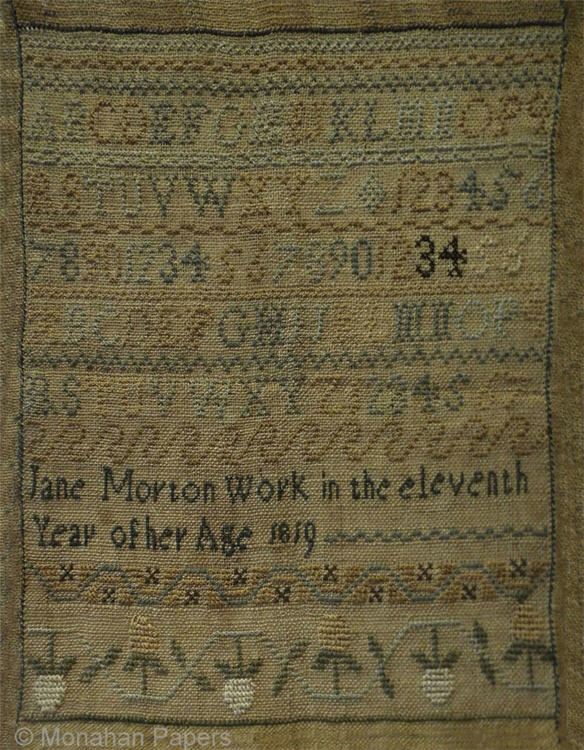 ABCDEFGHIKLMNOPQ
RSTUVWXYZ 123456
78901234567890123456
ABCDEFGHI KLMNOP
RSTUVWXYZ 12345
Jane Morton Work in the eleventh
Year of her Age 1819
© Monahan Papers